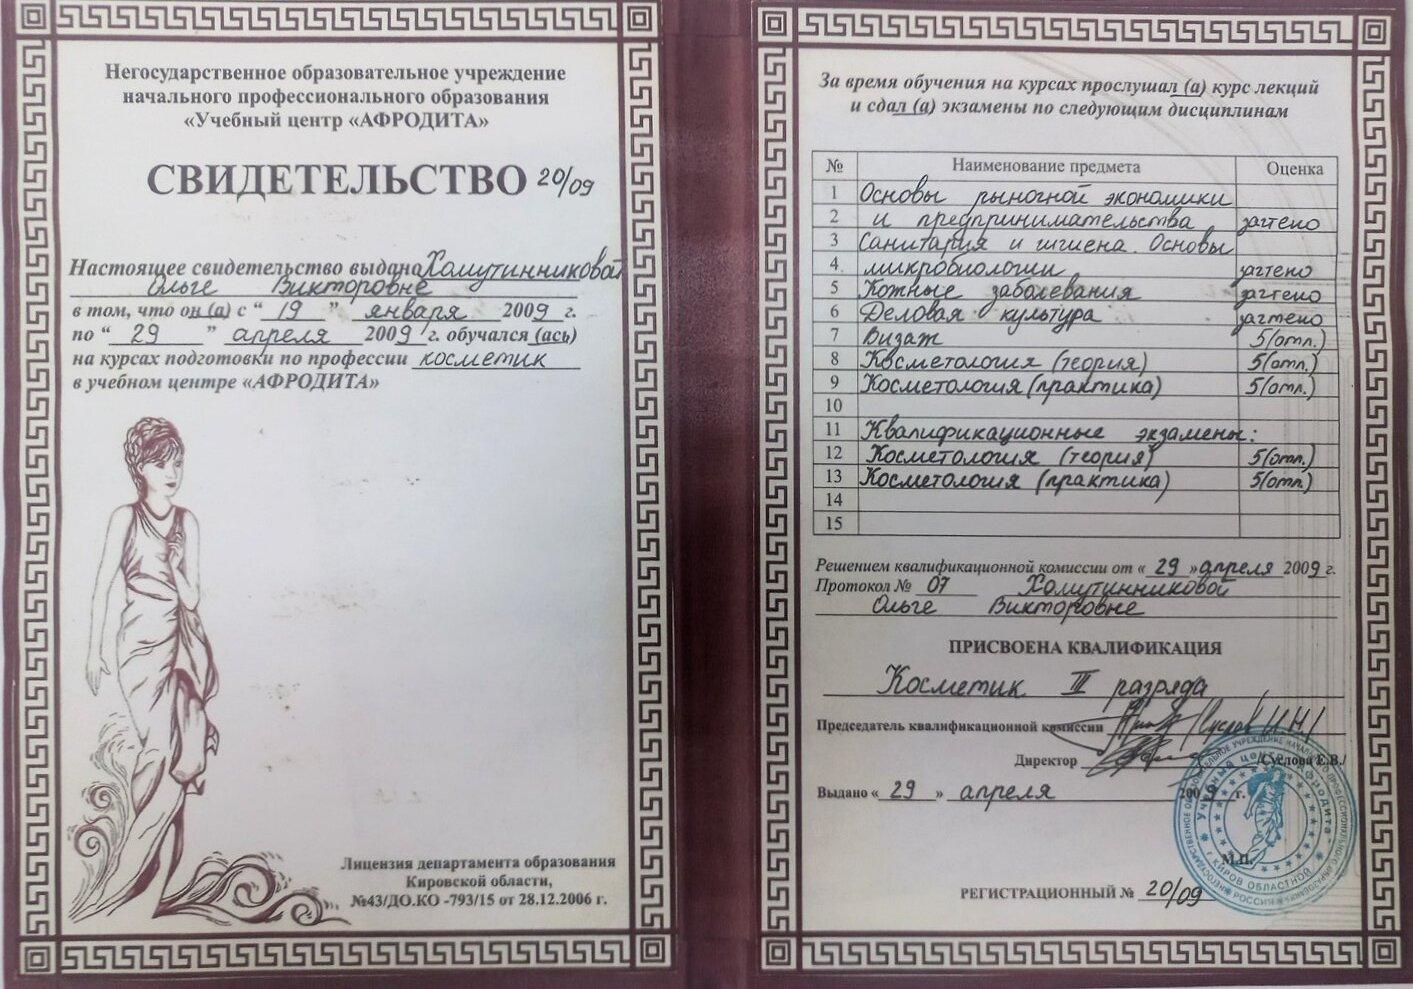 Негосударственное образовательное учреждение
начального профессионального образования
«Учебный центр «АФРОДИТА»
СВИДЕТЕЛЬСТВО 20/09
Настоящее свидетельство выдана Хомутинниковой
Ольге Викторовне
в том, что он (а) с “ 19 ” января 2009 г.
по “ 29 ” апреля 2009 г. обучался (ась)
на курсах подготовки по профессии косметик
в учебном центре «АФРОДИТА»
Лицензия департамента образования
Кировской области,
№43/ДО.КО -793/15 от 28.12.2006 г.
За время обучения на курсах прослушал (а) курс лекций
и сдал (а) экзамены по следующим дисциплинам
№ Наименование предмета Оценка
1 Основы рыночной экономики
2 и предпринимательства зачтено
3 Санитария и гигиена. Основы
4 микробиологии зачтено
5 Кожные заболевания зачтено
6 Деловая культура зачтено
7 Визаж 5(отл.)
8 Косметология (теория) 5(отл.)
9 Косметология (практика) 5(отл.)
10
11 Квалификационные экзамены:
12 Косметология (теория) 5(отл.)
13 Косметология (практика) 5(отл.)
14
15
Решением квалификационной комиссии от « 29 » апреля 2009 г.
Протокол № 07 Хомутинниковой
Ольге Викторовне
ПРИСВОЕНА КВАЛИФИКАЦИЯ
Косметик III разряда
Председатель квалификационной комиссии /Суслов И.Н/
Директор /Суслова Е.В./
Выдано « 29 » апреля 2009 г.
М.П.
Учебный центр "Афродита"
г. КИРОВ ОБЛАСТНОЙ
РОССИЯ
РЕГИСТРАЦИОННЫЙ № 20/09